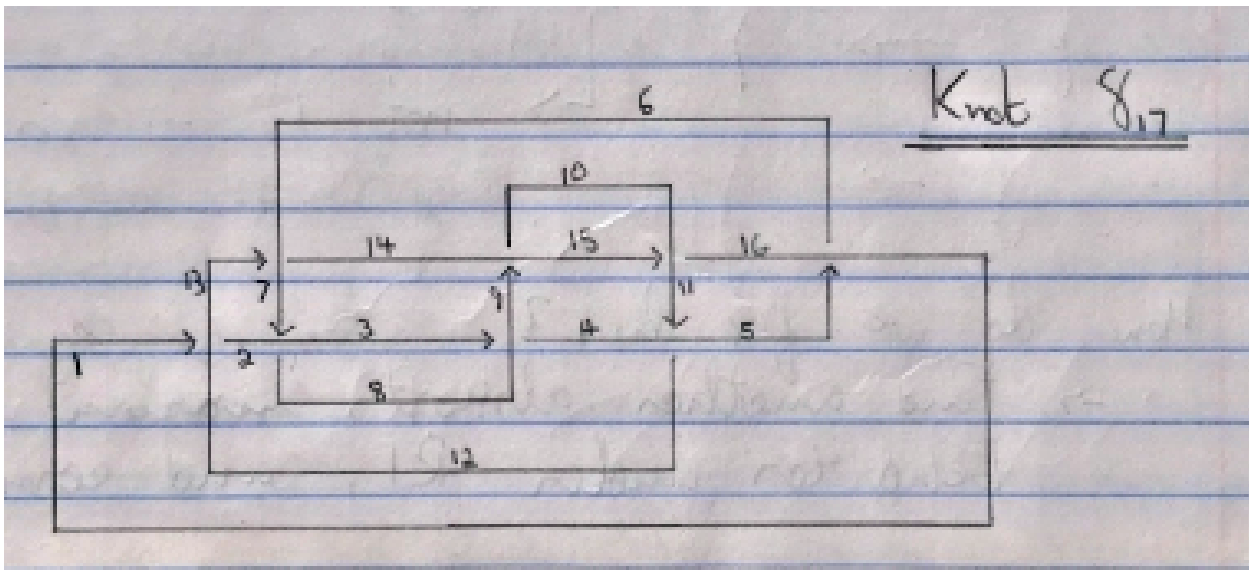 Knot 8₁₇
6
10
14 15 16
13 7 9 11
1 2 3 4 5
8
12